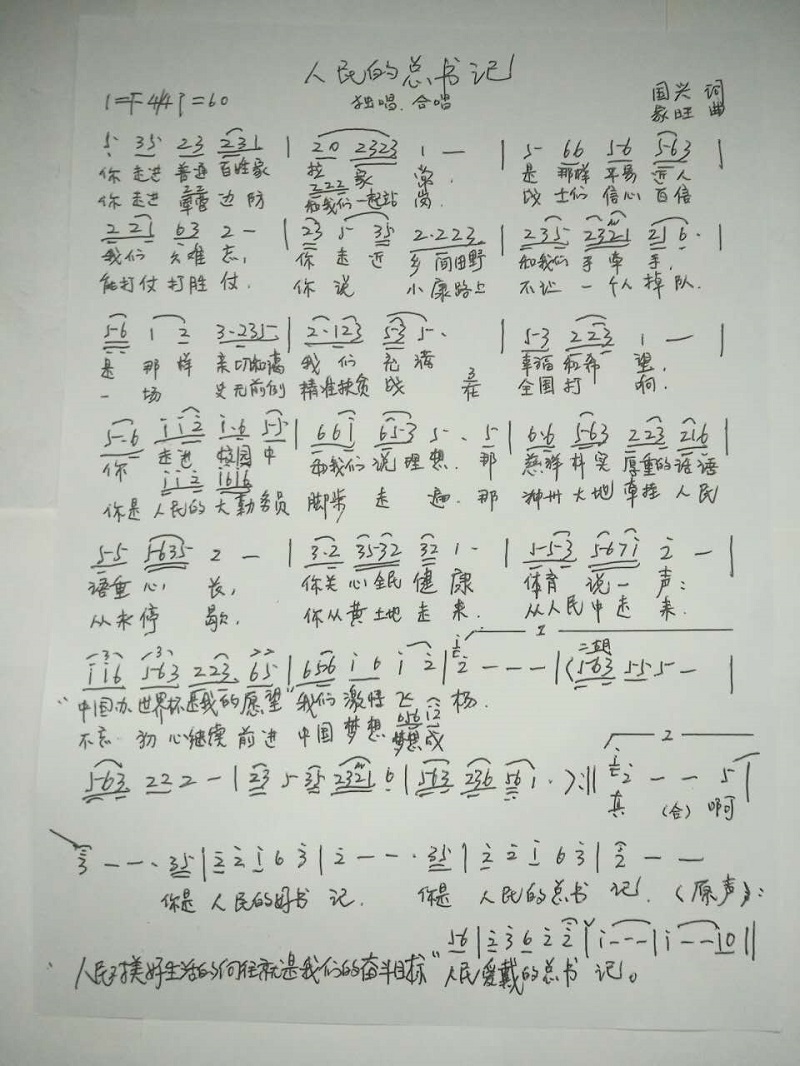 人民的总书记
1=F 4/4 ♩=60 独唱、合唱 国兴 词
家旺 曲
5 35 23 231 | 20 2323 1 — | 5 66 5·6 5·63 |
你 走进 普通 百姓家 拉 家 常 是 那样 平易 近人
你 走进 军营 边防 和我们一起站 岗 战 士们 信心 百倍
2 21 63 2 — | 23 5 35 2·223 | 235 2321 21 6· |
我们 久难 忘, 你 走 近 乡 间田野 和我们 手 牵 手,
能打仗 打胜 仗. 你 说 小康路上 不让 一 个人 掉队.
5·6 1 2 3·235 | 2·123 5·3 5· | 5·3 223 1 — |
是 那 样 亲切和蔼 我 们 充 满 幸福 和希 望.
一 场 史无前例 精准扶贫 战 在 全国 打 响.
5·6 i i 2 i·6 5·5 | 66i 65·3 5· 5 | 6·6 5·63 223 216
你 走进 校园 中 和我们 说 理想. 那 慈祥 朴实 厚重的 话语
i i 2 i6i6
你是 人民的 大勤务员 脚步 走 遍. 那 神州 大地 牵挂 人民
5·5 5·635 2 — | 3·2 35·32 32 1· | 5·5·3 5·67i 2 — |
语重 心 长, 你关 心全民 健 康 体育 说一 声:
从未停 歇. 你从黄土地 走 来. 从人民 中走 来.
ii6 5·63 223 65 | 656 i 6 i 2 | 2 — — — | (5·63 5 5 5 — |
“中国办 世界杯是我的愿望”我们 激情 飞 扬.
不忘 初 心继续 前进 中国 梦想 梦想成
5·63 22 2 — | 23 5 35 2321 6 | 563 236 56 1 · ) :|| 2 — — 5 |
真 (合) 啊
3 — — · 35 | 2 2 1 6 3 | 2 — — · 35 | 2 2 1 6 3 | 2 — —
你是 人民的好书 记. 你是 人民的总书 记. (原声):
56 | 2 3 6 2 2 | i — — — | i — — 10 ||
人民对美好生活的向往就是我们的奋斗目标” 人民爱戴的总书 记。